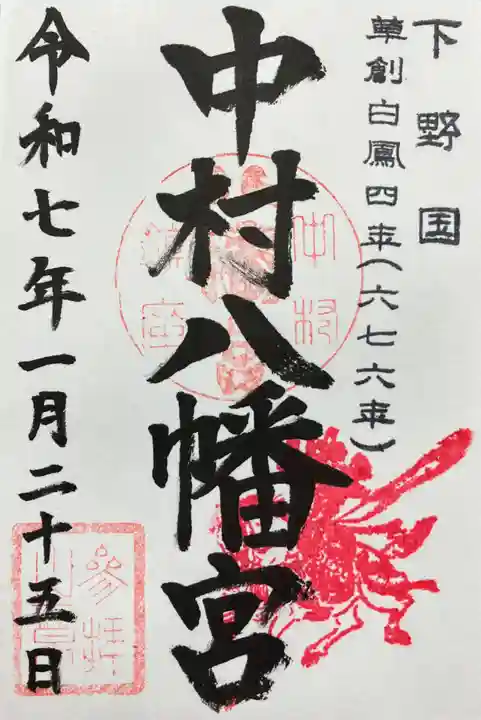 下野国
草創白鳳四年(六七六年)
中村八幡宮
令和七年一月二十五日
中村
参拝